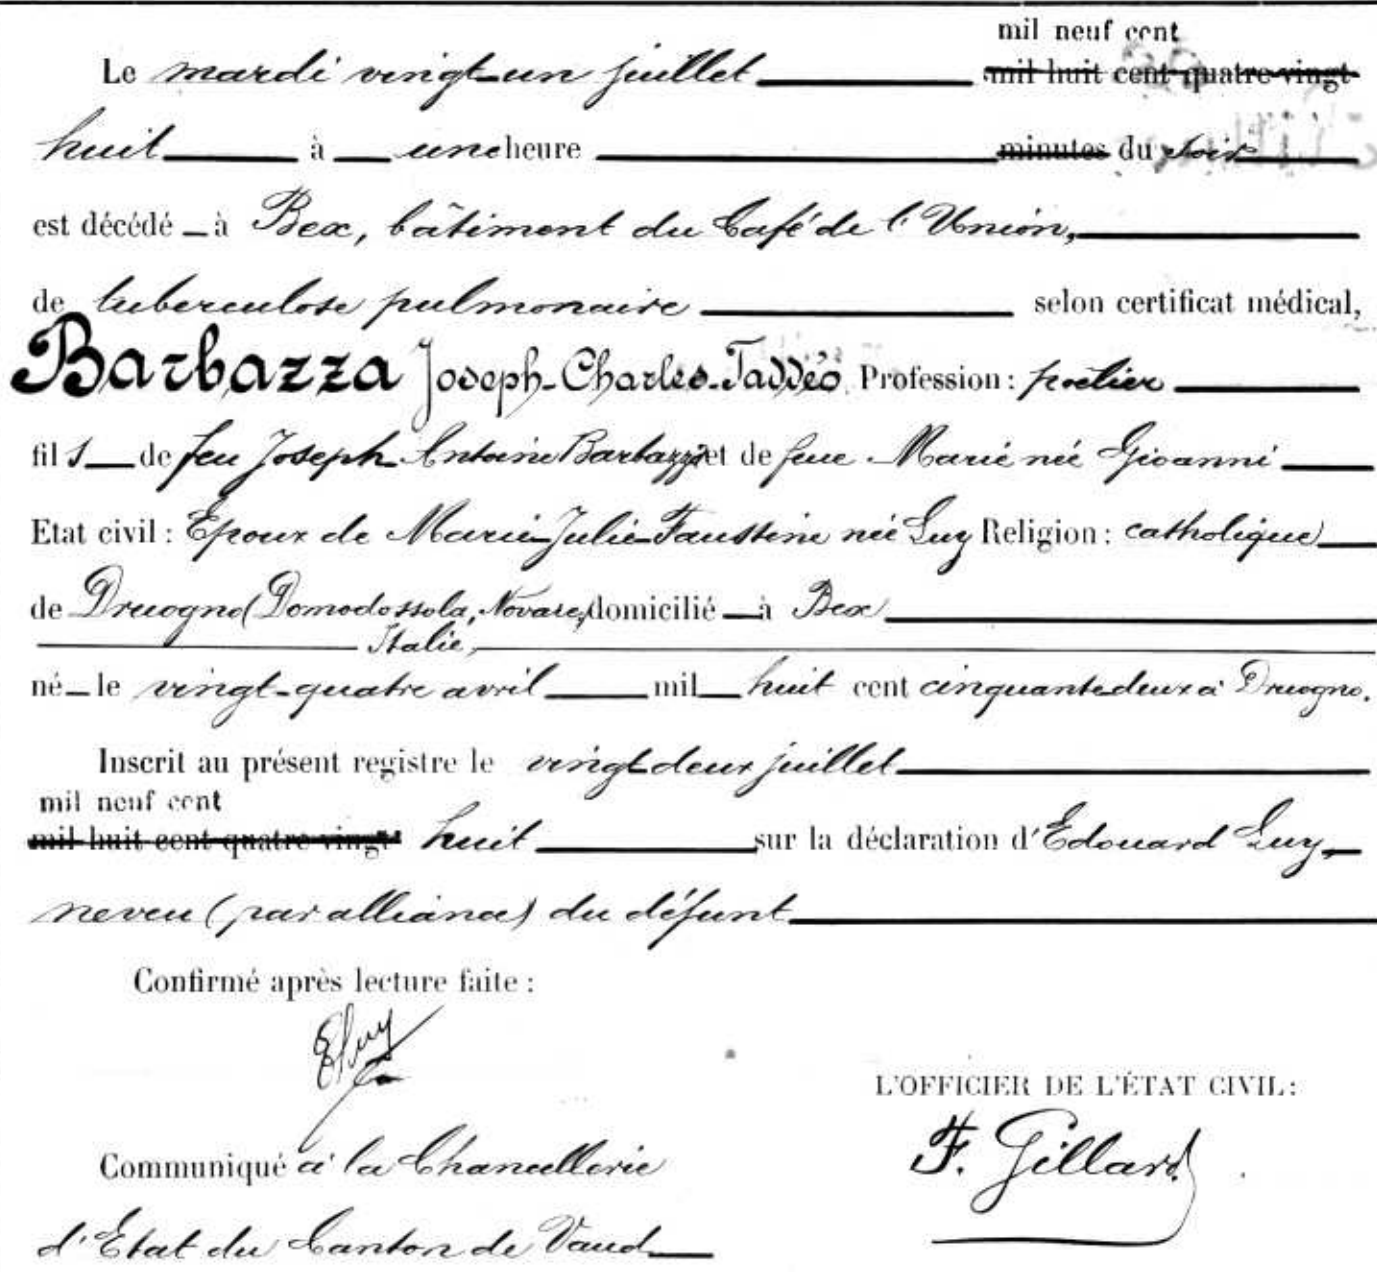 mil neuf cent
Le mardi vingt-un juillet mil huit cent quatre-vingt
huit à une heure minutes du soir
est décédé à Bex, bâtiment du Café de l'Union,
de tuberculose pulmonaire selon certificat médical,
Barbazza Joseph-Charles-Taddéo Profession : poêlier
fils de feu Joseph-Antoine Barbazza et de feue Marie née Gioanni
Etat civil : Epoux de Marie-Julie-Faustine née Luy Religion : catholique
de Druogno (Domodossola, Novare, domicilié à Bex
Italie,
né le vingt-quatre avril mil huit cent cinquante deux à Druogno.
Inscrit au présent registre le vingt deux juillet
mil neuf cent
mil huit cent quatre-vingt huit sur la déclaration d'Edouard Luy,
neveu (par alliance) du défunt
Confirmé après lecture faite :
E Luy
L'OFFICIER DE L'ÉTAT CIVIL :
Communiqué à la Chancellerie
F. Gillard
d'Etat du Canton de Vaud